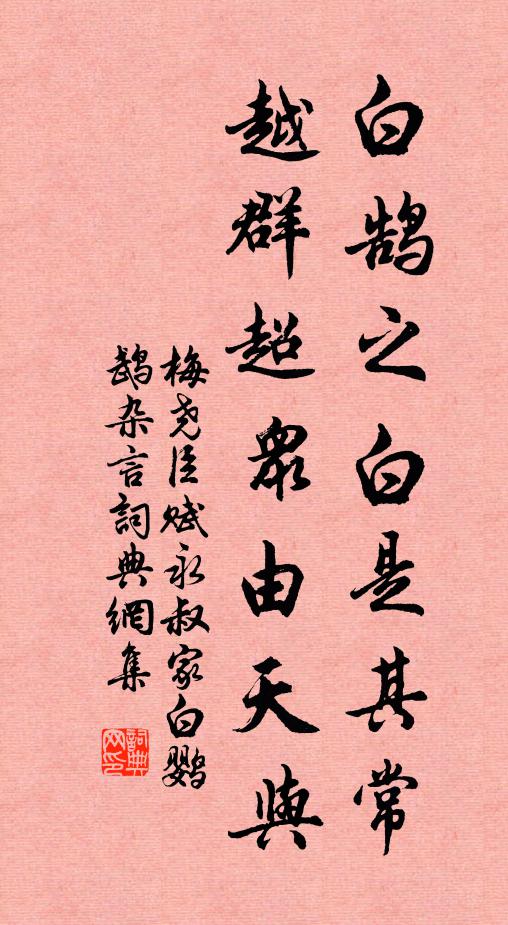 白鹄之白是其常
越群超眾由天與
梅尧臣赋永叔家白鹦
鹉杂言詞典網集
詞典网印